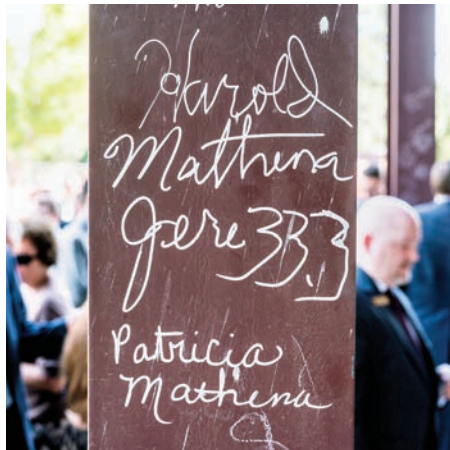 Harold
Mathena
Jere 33.3
Patricia
Mathena